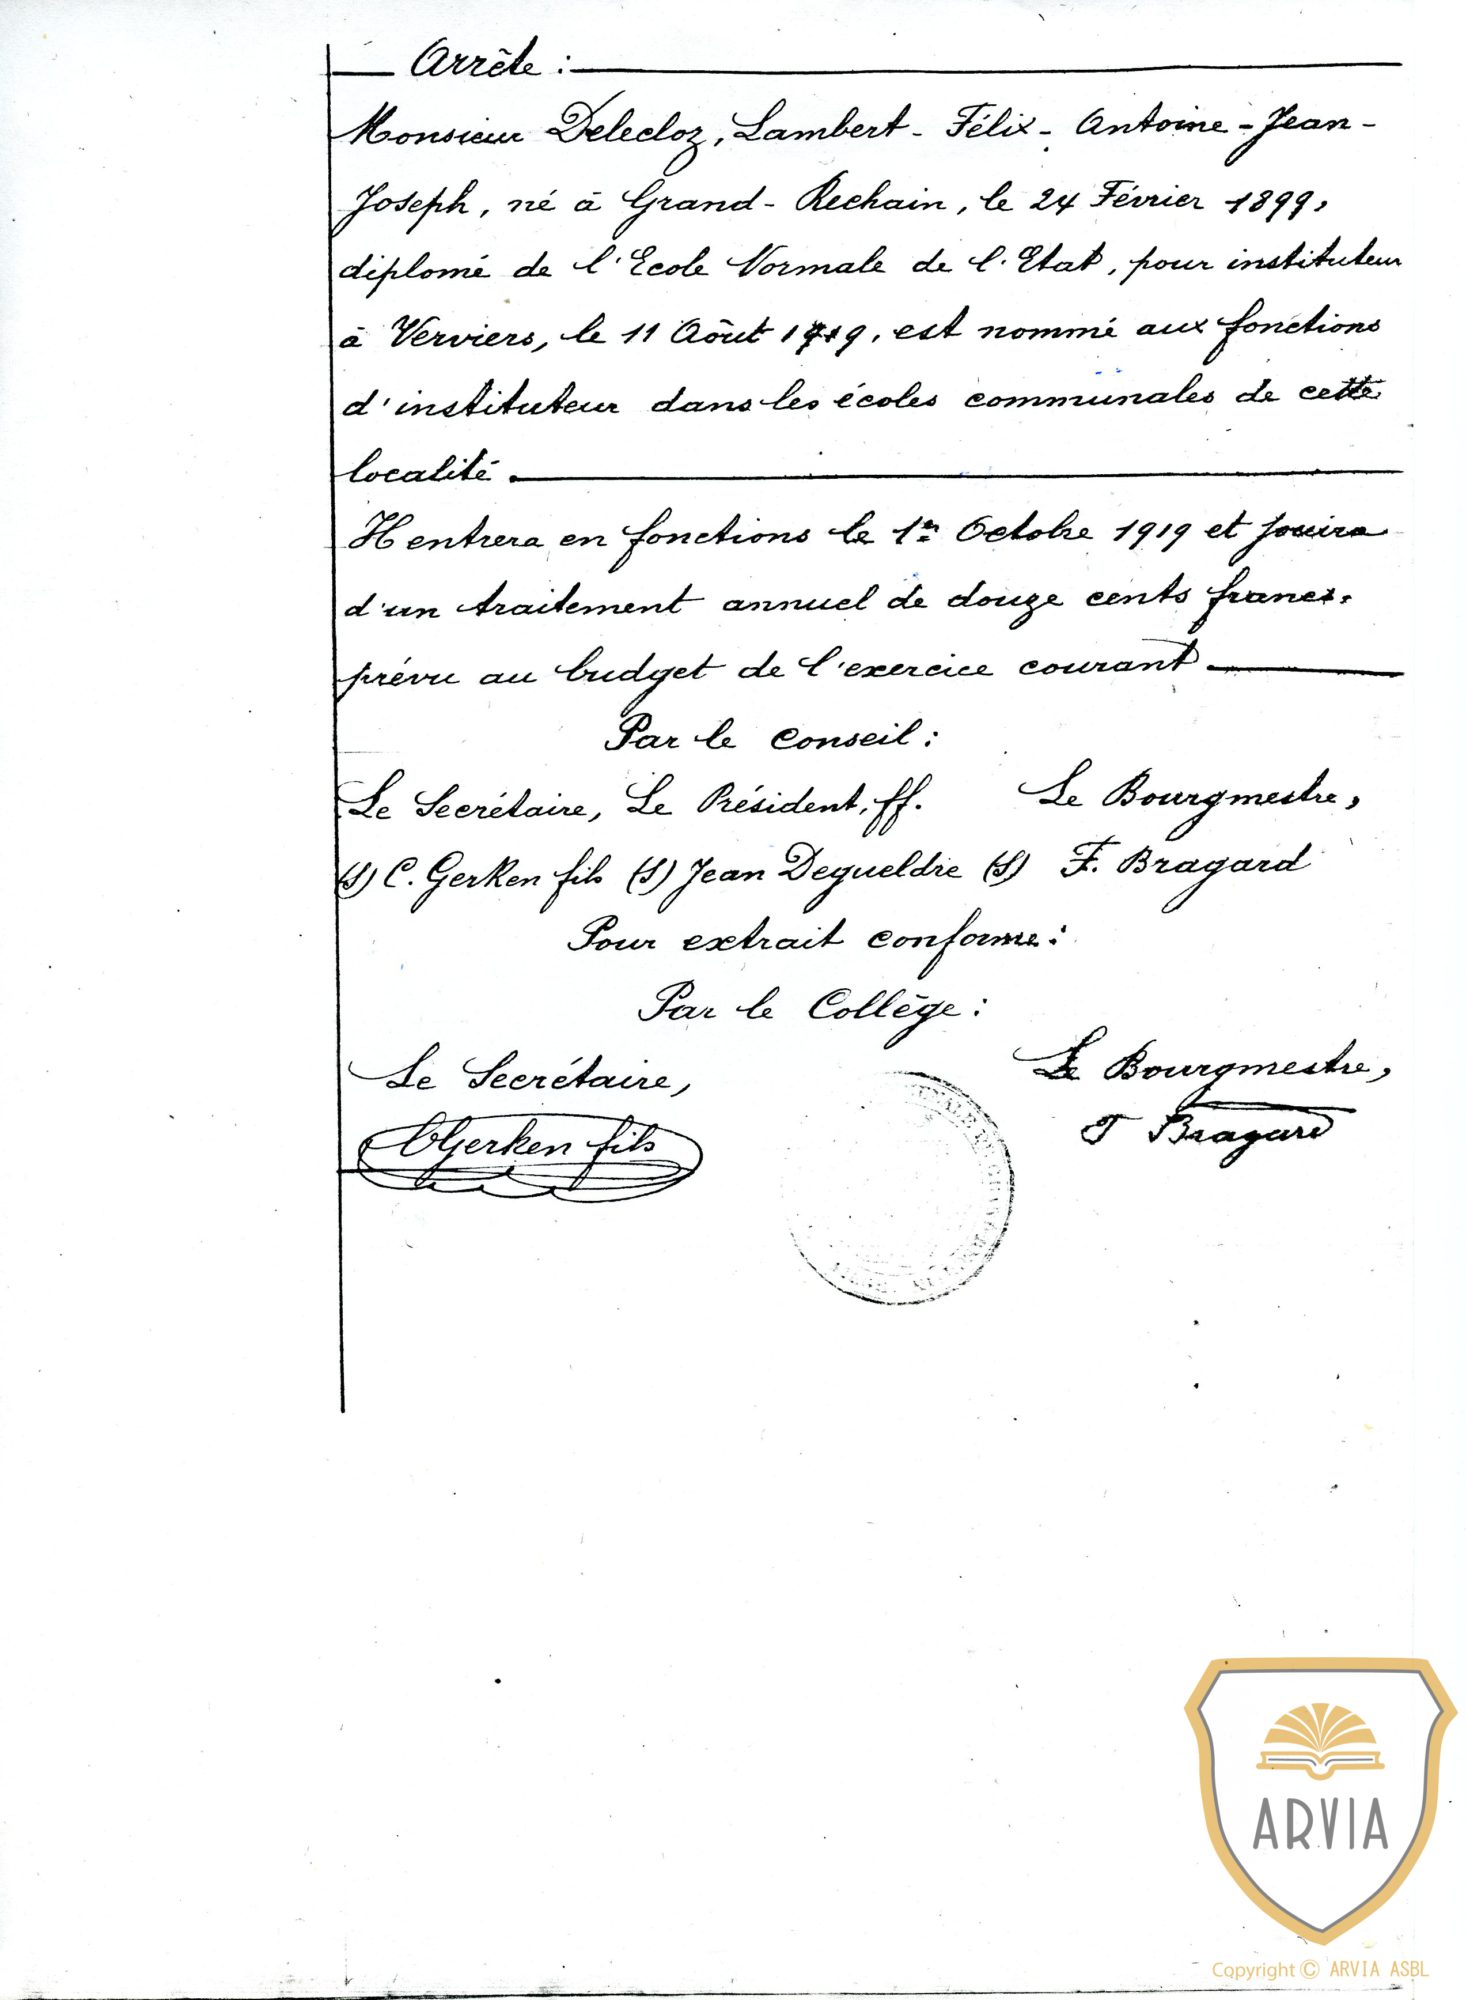 Arrête :
Monsieur Delecloz, Lambert - Félix - Antoine - Jean -
Joseph, né à Grand - Rechain, le 24 Février 1899,
diplomé de l'Ecole Normale de l'Etat, pour instituteur
à Verviers, le 11 Aôut 1919, est nommé aux fonctions
d'instituteur dans les écoles communales de cette
localité.
Il entrera en fonctions le 1er Octobre 1919 et jouira
d'un traitement annuel de douze cents francs.
prévu au budget de l'exercice courant
Par le Conseil :
Le Secrétaire, Le Président, ff. Le Bourgmestre,
(s) C. Gerken fils (s) Jean Degueldre (s) F. Bragard
Pour extrait conforme :
Par le Collège :
Le Secrétaire, Le Bourgmestre,
CGerken fils F Bragard
ARVIA
Copyright © ARVIA ASBL